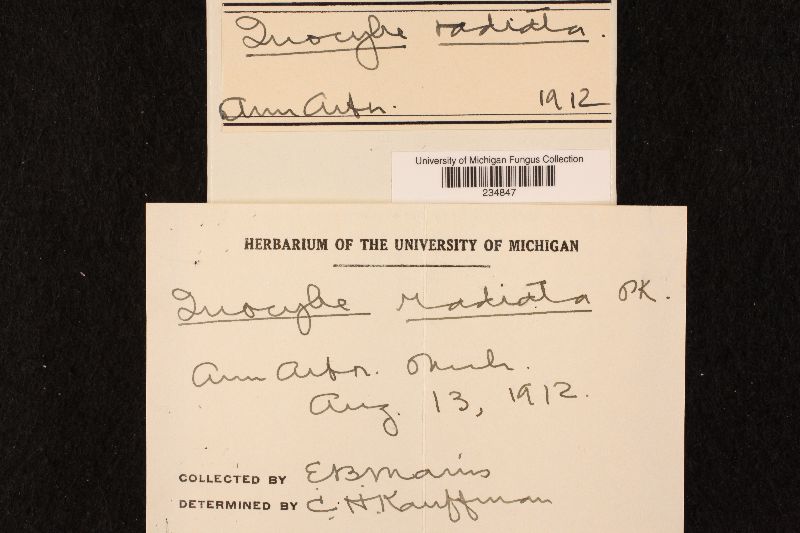 Inocybe radiata.
Ann Arbor. 1912
University of Michigan Fungus Collection
234847
HERBARIUM OF THE UNIVERSITY OF MICHIGAN
Inocybe radiata PK.
Ann Arbor. Mich.
Aug. 13, 1912.
COLLECTED BY E.B. Mains
DETERMINED BY C.H. Kauffman